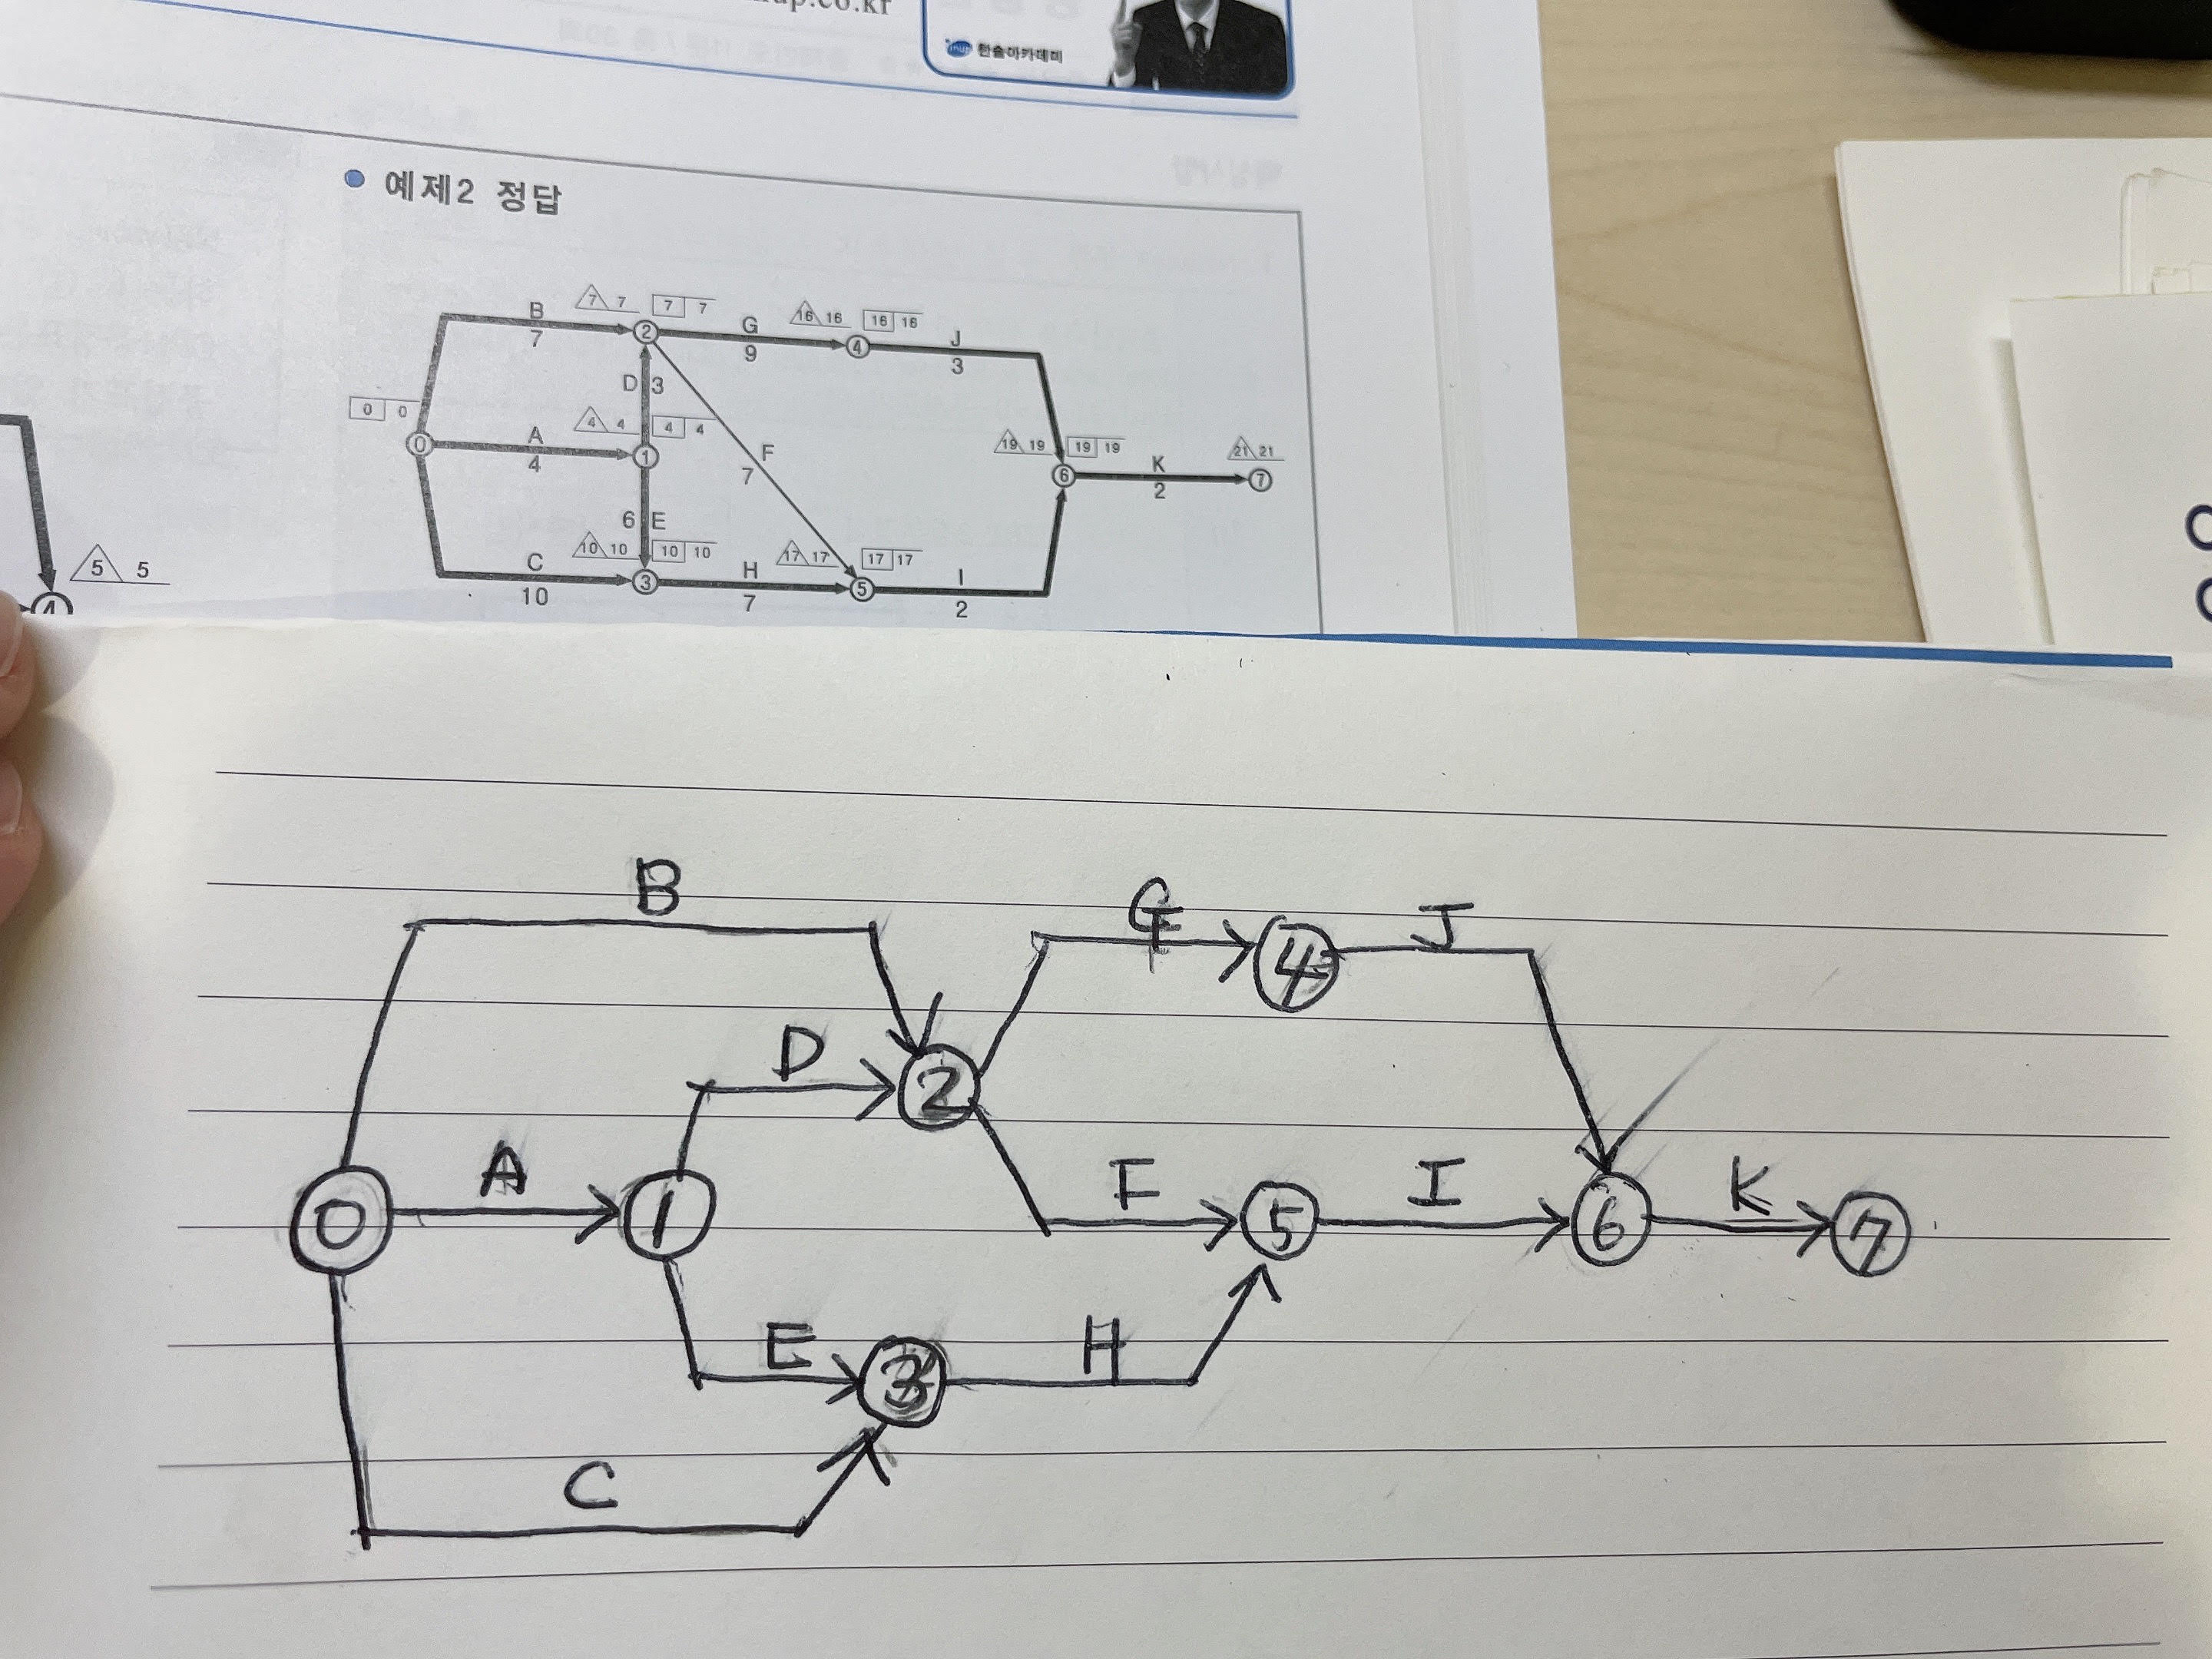 up.co.kr
한솔아카데미
예제2 정답
B
7
7 7
7 7
G
9
16 16
16 16
J
3
D 3
0 0
0
A
4
4 4
4 4
1
2
4
F
7
19 19
19 19
6
K
2
21 21
7
6 E
10 10
10 10
C
10
3
H
7
17 17
17 17
5
I
2
5 5
4
B
G
4
J
D
2
0
A
1
F
5
I
6
K
7
E
3
H
C